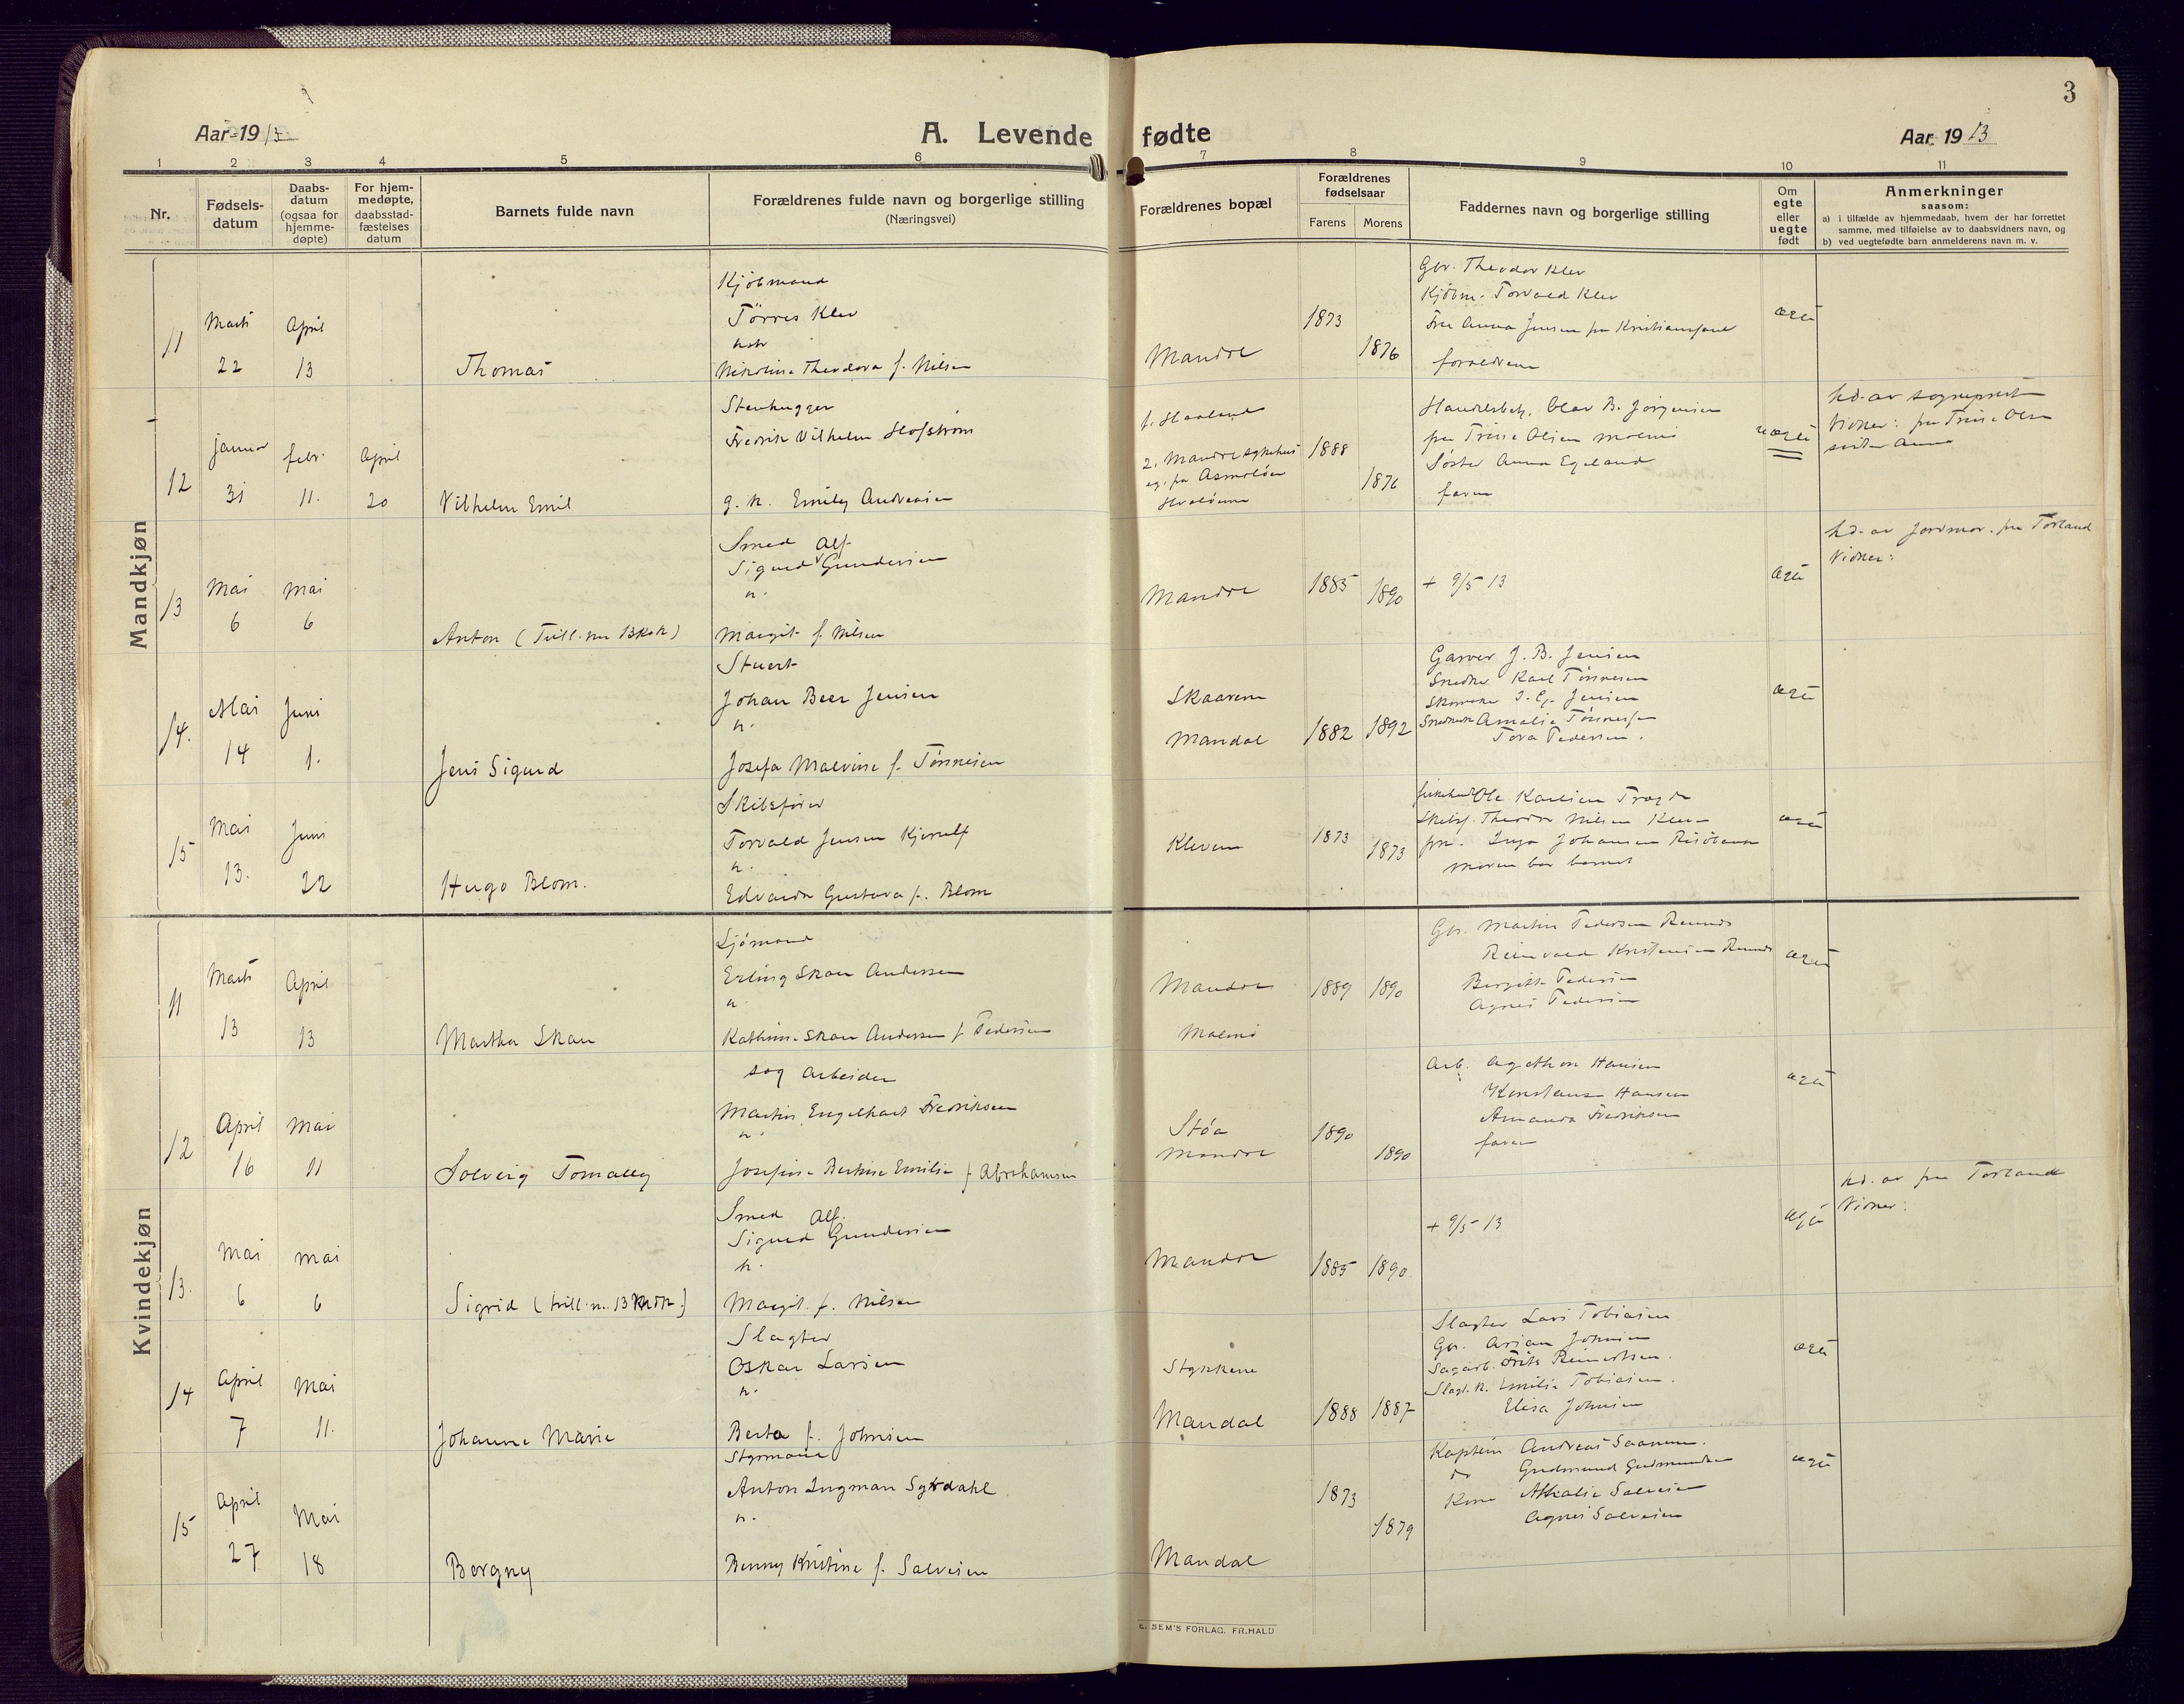 3
Aar 19 13
A. Levende fødte
Aar 19 13
1 2 3 4 5 6 7 8 9 10 11
Nr.
Fødsels-datum
Daabs-datum (ogsaa for hjemme-døpte)
For hjem-medøpte, daabsstad-fæstelses datum
Barnets fulde navn
Forældrenes fulde navn og borgerlige stilling
(Næringsvei)
Forældrenes bopæl
Forældrenes fødselsaar
Farens Morens
Faddernes navn og borgerlige stilling
Om egte eller uegte født
Anmerkninger
saasom:
a) i tilfælde av hjemmedaab, hvem der har forrettet samme, med tilføielse av to daabsvidners navn, og
b) ved uegtefødte barn anmelderens navn m. v.
Mandkjøn
11
Marts 22
April 13
Thomas
Kjöbmand
Törres Klev
Nikoline Theodora f. Nilsen
Mandal
1873 1876
Gbr. Theodor Klev
Kjöbm. Torvald Klev
Fru Anna Jensen fra Kristiansand
forældrene
ægte
12
januar 31
febr. 11.
April 20
Vilhelm Emil
Stenhugger
Fredrik Vilhelm Hofström
g. k. Emily Andreasen
1. Haaland
2. Mandal sykehus
eg. fra Asmaløen
Hvaløerne
1888 1876
Handelsbetj. Olav B. Jörgensen
fru Trine Olsen Malmö
Söster Anna Egeland
faren
uægte
hd. av sogneprest
Vidner: fru Trine Olsen
söster Anna
13
Mai 6
Mai 6
Anton (Tvill. m 13 Kvk)
Smed Alf
Sigurd Gundersen
h.
Margit f. Nilsen
Mandal
1885 1890
+ 9/5 13
ægte
hd. av jordmor. fru Torland
Vidner:
14.
Mai 14
Juni 1.
Jens Sigurd
Stuert
Johan Beer Jensen
h.
Josefa Malvine f. Tönnesen
Skaarene
Mandal
1882 1892
Garver J. B. Jensen
Snedker Karl Tönnesen
Skomaker J. G. Jensen
Snedkerk Amalie Tönnesen
Tora Pedersen.
ægte
15
Mai 13.
Juni 22
Hugo Blom.
Skibsfører
Torvald Jensen Kjerulf
h.
Edvarda Gustava f. Blom
Kleven
1873 1873
Ole Karlsen Tregde
Skibsf. Theodor Nilsen Kleven
frk. Inga Johansen Risöbank
moren bar barnet
ægte
Kvindekjøn
11
Marts 13
April 13
Martha Skau
Sjömand
Erling Skau Andersen
h.
Kathrine Skau Andersen f Pedersen
Mandal
Malmö
1889 1890
Gbr. Martin Pedersen
Reinvald Kristensen
Bergitte Pedersen
Agnes Pedersen
ægte
12
April 16
Mai 11
Solveig Tomally
Sag arbeider
Martin Engelhart Fredriksen
h.
Josefine Bertine Emilie f Abrahamsen
Støa
Mandal
1890 1890
Arb. Agathon Hansen
Konstanse Hansen
Amanda Fredriksen
faren
ægte
13.
Mai 6
Mai 6
Sigrid (tvill. m. 13 Mdk.)
Smed Alf.
Sigurd Gundersen
h.
Margit. f. Nilsen
Mandal
1885 1890
+ 9/5 13
ægte
hd. av fru Torland
Vidner:
14
April 7
Mai 11.
Johanne Marie
Slagter
Oskar Larsen
h.
Berta f. Johnsen
Stykkene
Mandal
1888 1887
Slagter Lars Tobiasen
Gbr. Arjan Johnsen
Sagarb. Frits Reinertsen.
Slagt. k. Emilie Tobiasen.
Elisa Johnsen
ægte
15
April 27
Mai 18
Borgny
Styrmand
Anton Ingman Syrdahl
h.
Benny Kristine f. Salvesen
Mandal
1873 1879
Kaptein Andreas Saanum.
do Gudmund Gudmundsen
Kone Athalie Salvesen
Agnes Salvesen
ægte
E. SEM'S FORLAG. FR. HALD